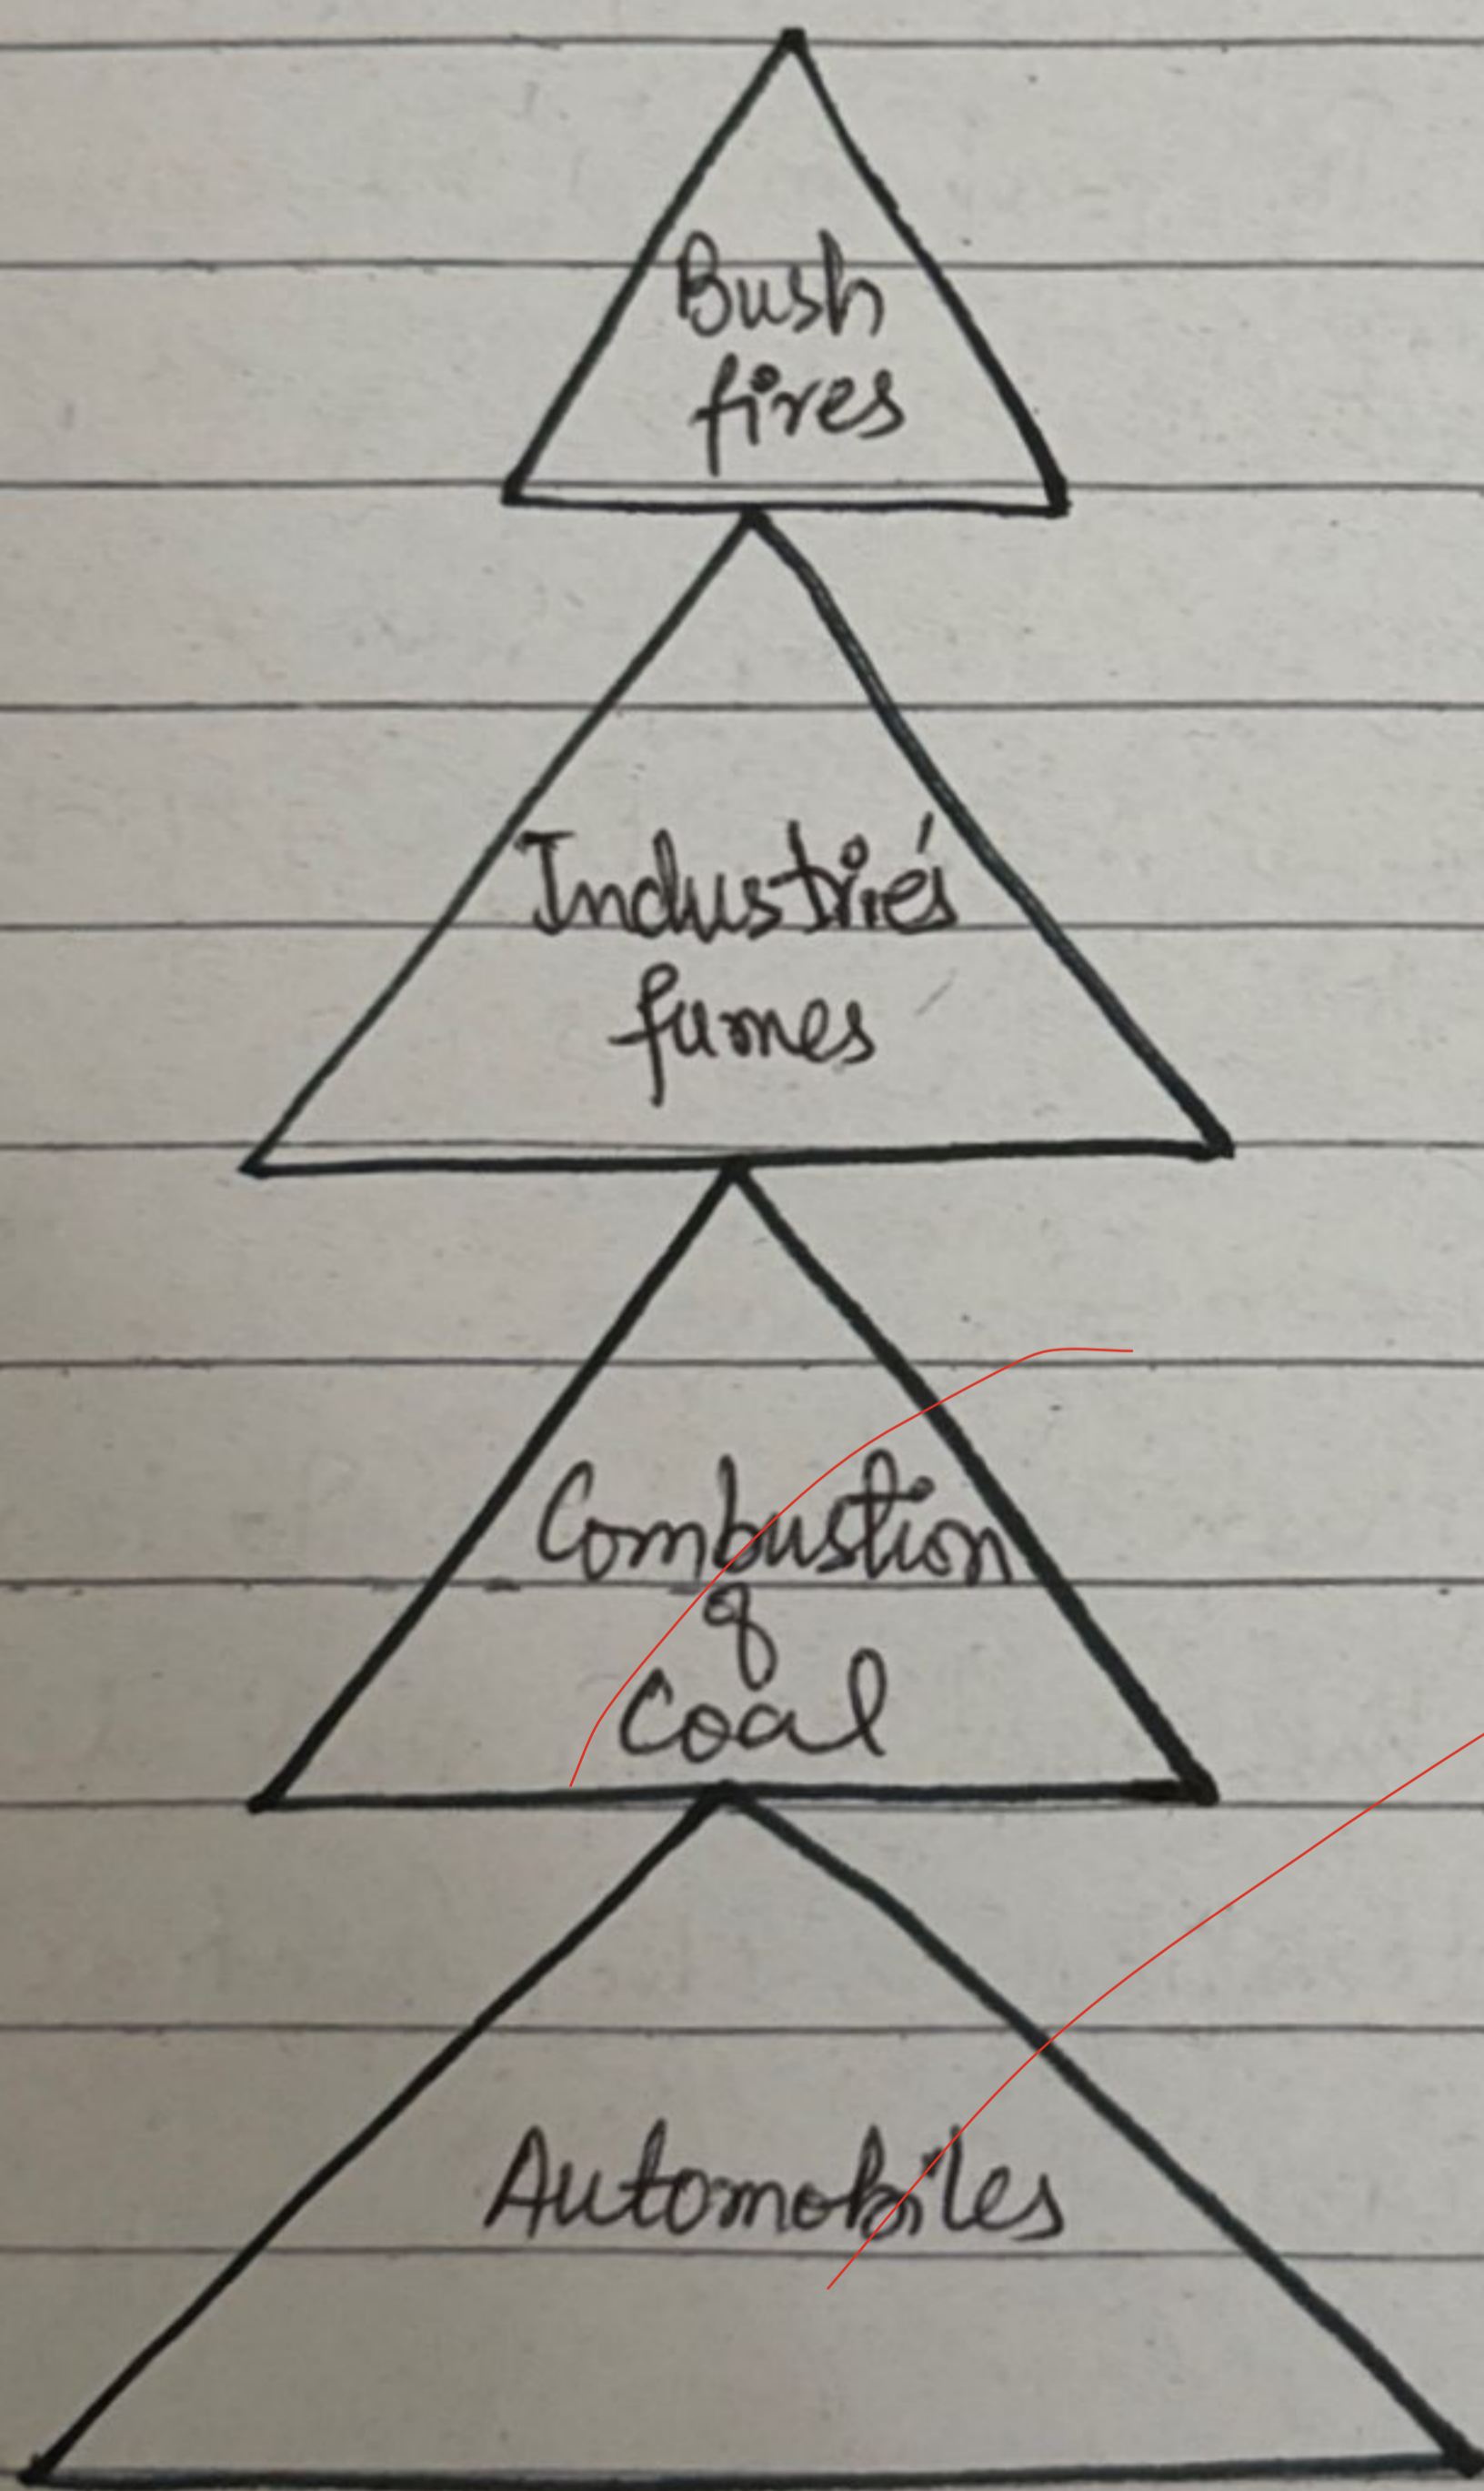 Bush
fires
Industrie's
fumes
Combustion
of
Coal
Automobiles